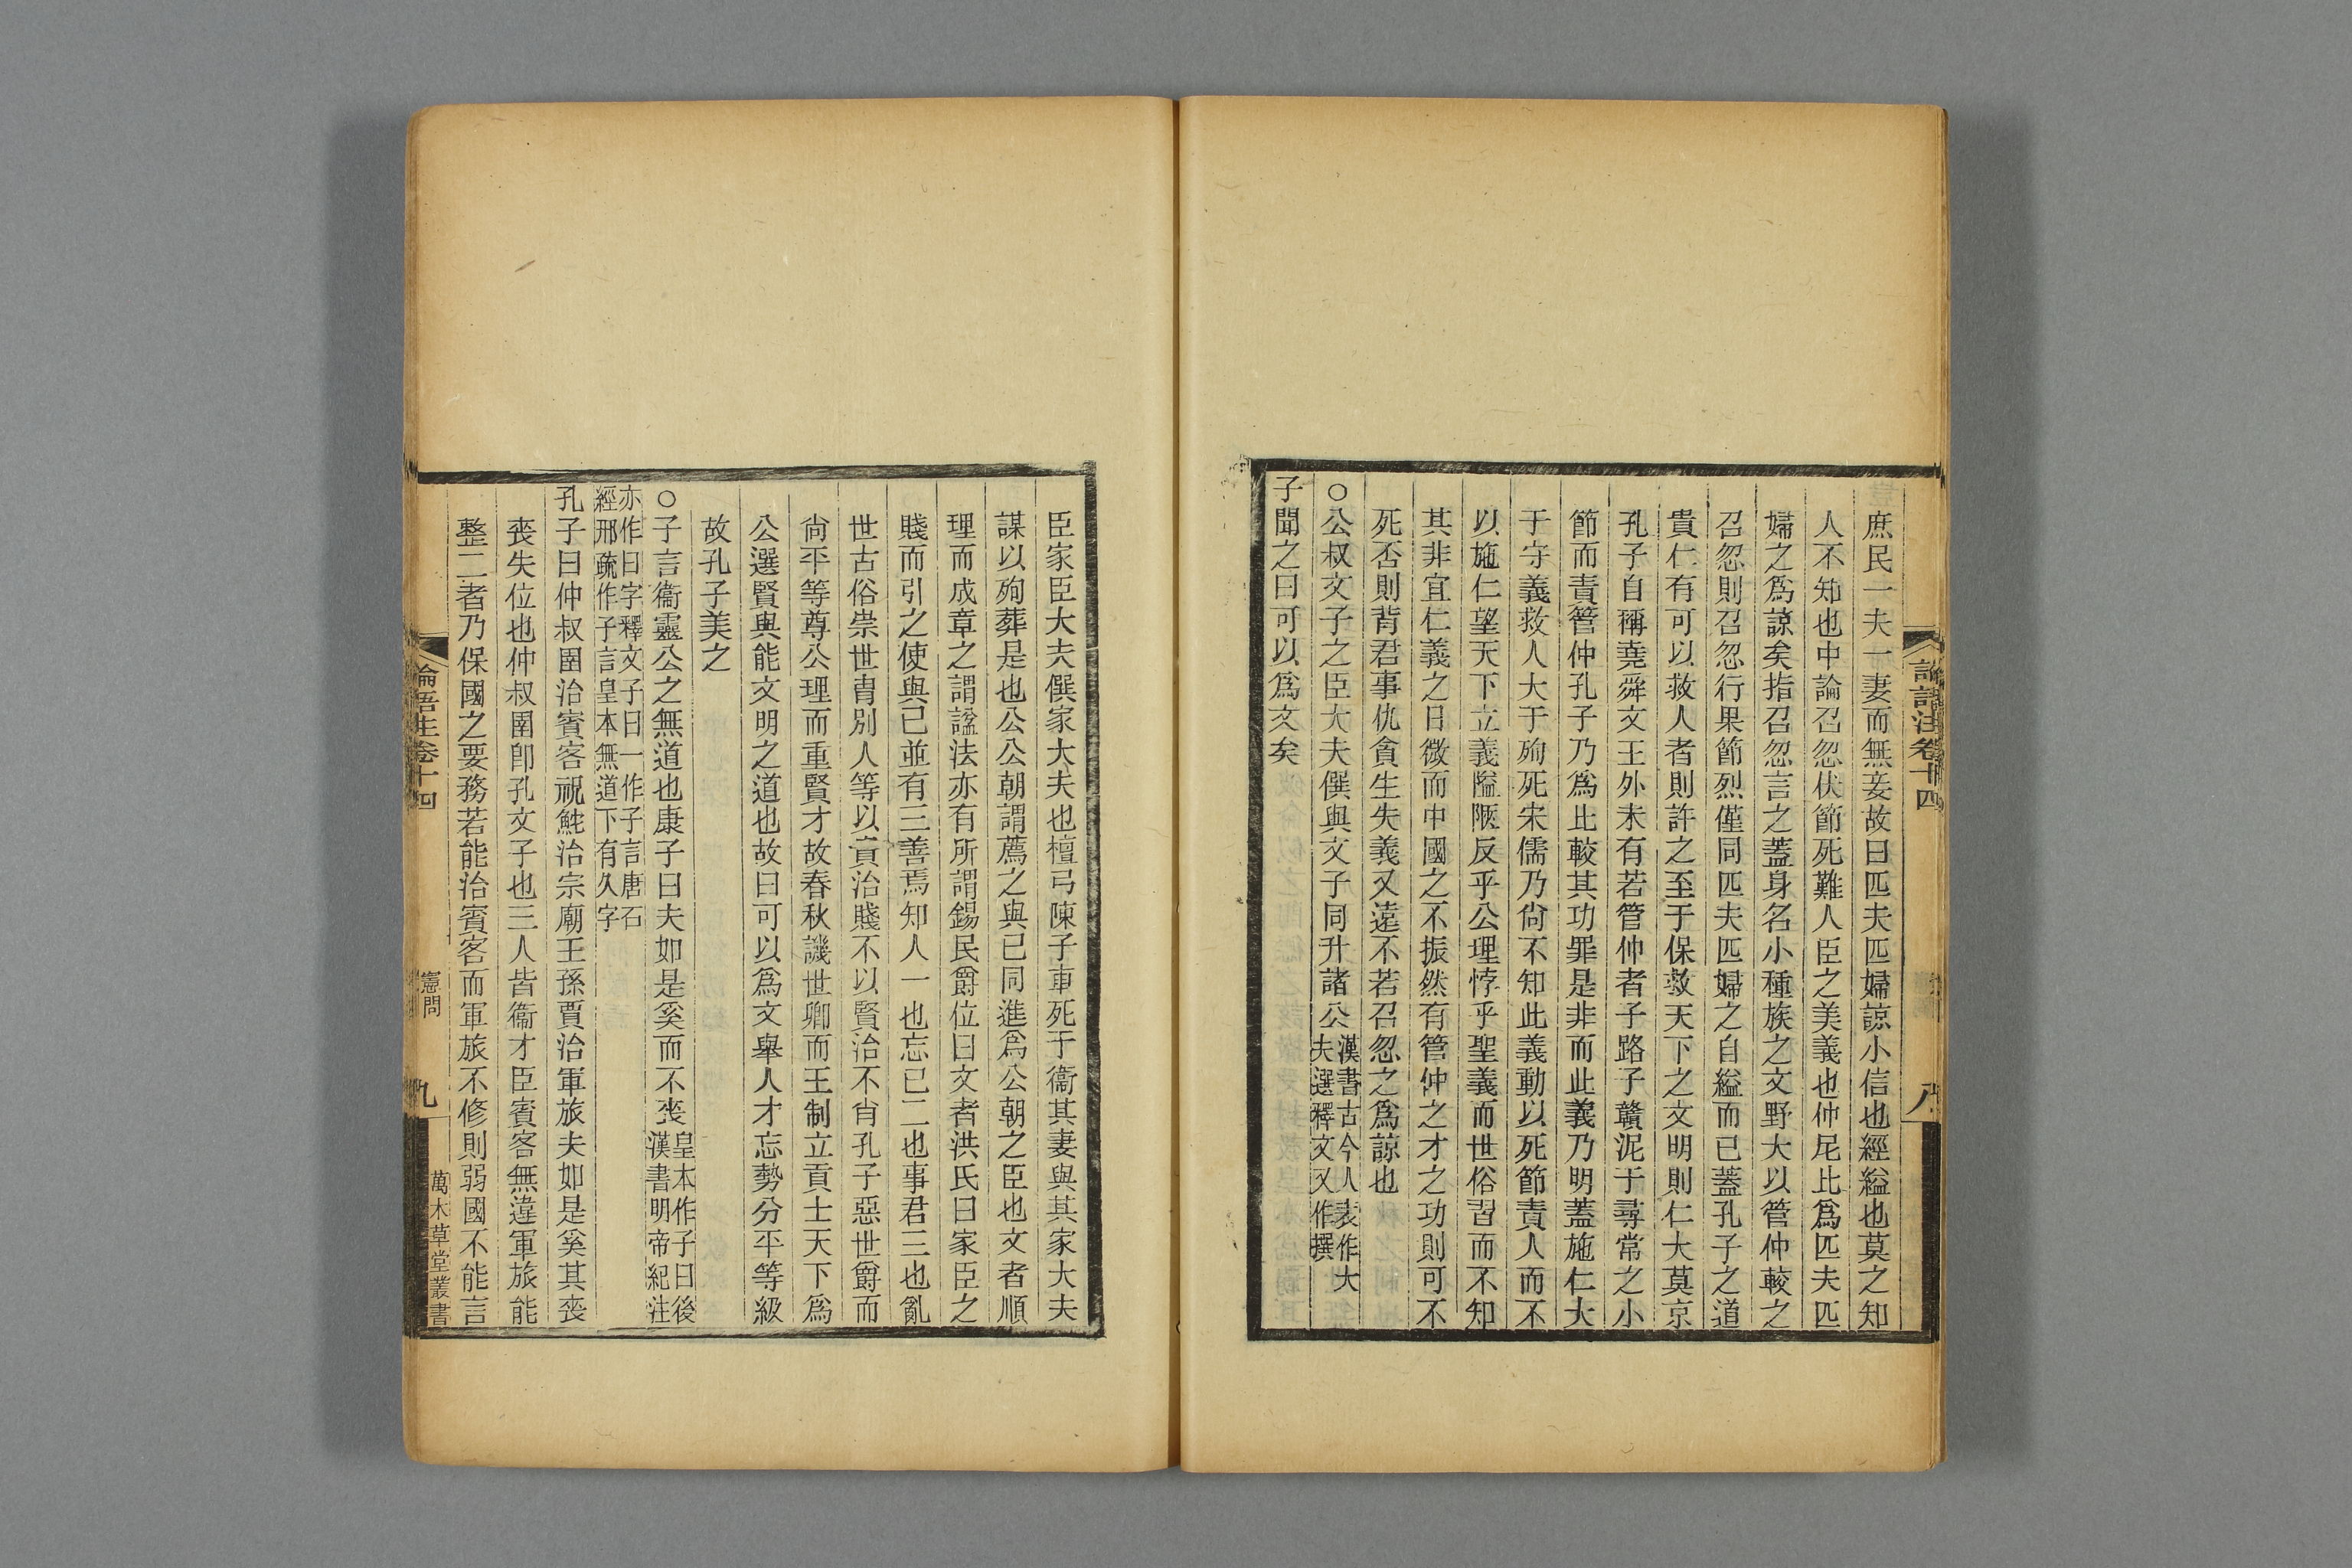 論語注卷十四
八
庶民一夫一妻而無妾故曰匹夫匹婦諒小信也經縊也莫之知
人不知也中論召忽伏節死難人臣之美義也仲尼比爲匹夫匹
婦之爲諒矣指召忽言之蓋身名小種族之文野大以管仲較之
召忽則召忽行果節烈僅同匹夫匹婦之自縊而已蓋孔子之道
貴仁有可以救人者則許之至于保救天下之文明則仁大莫京
孔子自稱堯舜文王外未有若管仲者子路子贛泥于尋常之小
節而責管仲孔子乃爲比較其功罪是非而此義乃明蓋施仁大
于守義救人大于殉死宋儒乃尙不知此義動以死節責人而不
以施仁望天下立義隘陋反乎公理悖乎聖義而世俗習而不知
其非宜仁義之日微而中國之不振然有管仲之才之功則可不
死否則背君事仇貪生失義又遠不若召忽之爲諒也
○公叔文子之臣大夫僎與文子同升諸公漢書古今人表作大
夫選釋文又作撰
子聞之曰可以爲文矣
臣家臣大夫僎家大夫也檀弓陳子車死于衞其妻與其家大夫
謀以殉葬是也公公朝謂薦之與已同進爲公朝之臣也文者順
理而成章之謂諡法亦有所謂錫民爵位曰文者洪氏曰家臣之
賤而引之使與已並有三善焉知人一也忘已二也事君三也亂
世古俗崇世胄別人等以貴治賤不以賢治不肖孔子惡世爵而
尙平等尊公理而重賢才故春秋譏世卿而王制立貢士天下爲
公選賢與能文明之道也故曰可以爲文舉人才忘勢分平等級
故孔子美之
○子言衞靈公之無道也康子曰夫如是奚而不喪皇本作子曰後
漢書明帝紀注
亦作曰字釋文子曰一作子言唐石
經邢疏作子言皇本無道下有久字
孔子曰仲叔圉治賓客祝鮀治宗廟王孫賈治軍旅夫如是奚其喪
喪失位也仲叔圉卽孔文子也三人皆衞才臣賓客無違軍旅能
整二者乃保國之要務若能治賓客而軍旅不修則弱國不能言
論語注卷十四
憲問
九
萬木草堂叢書